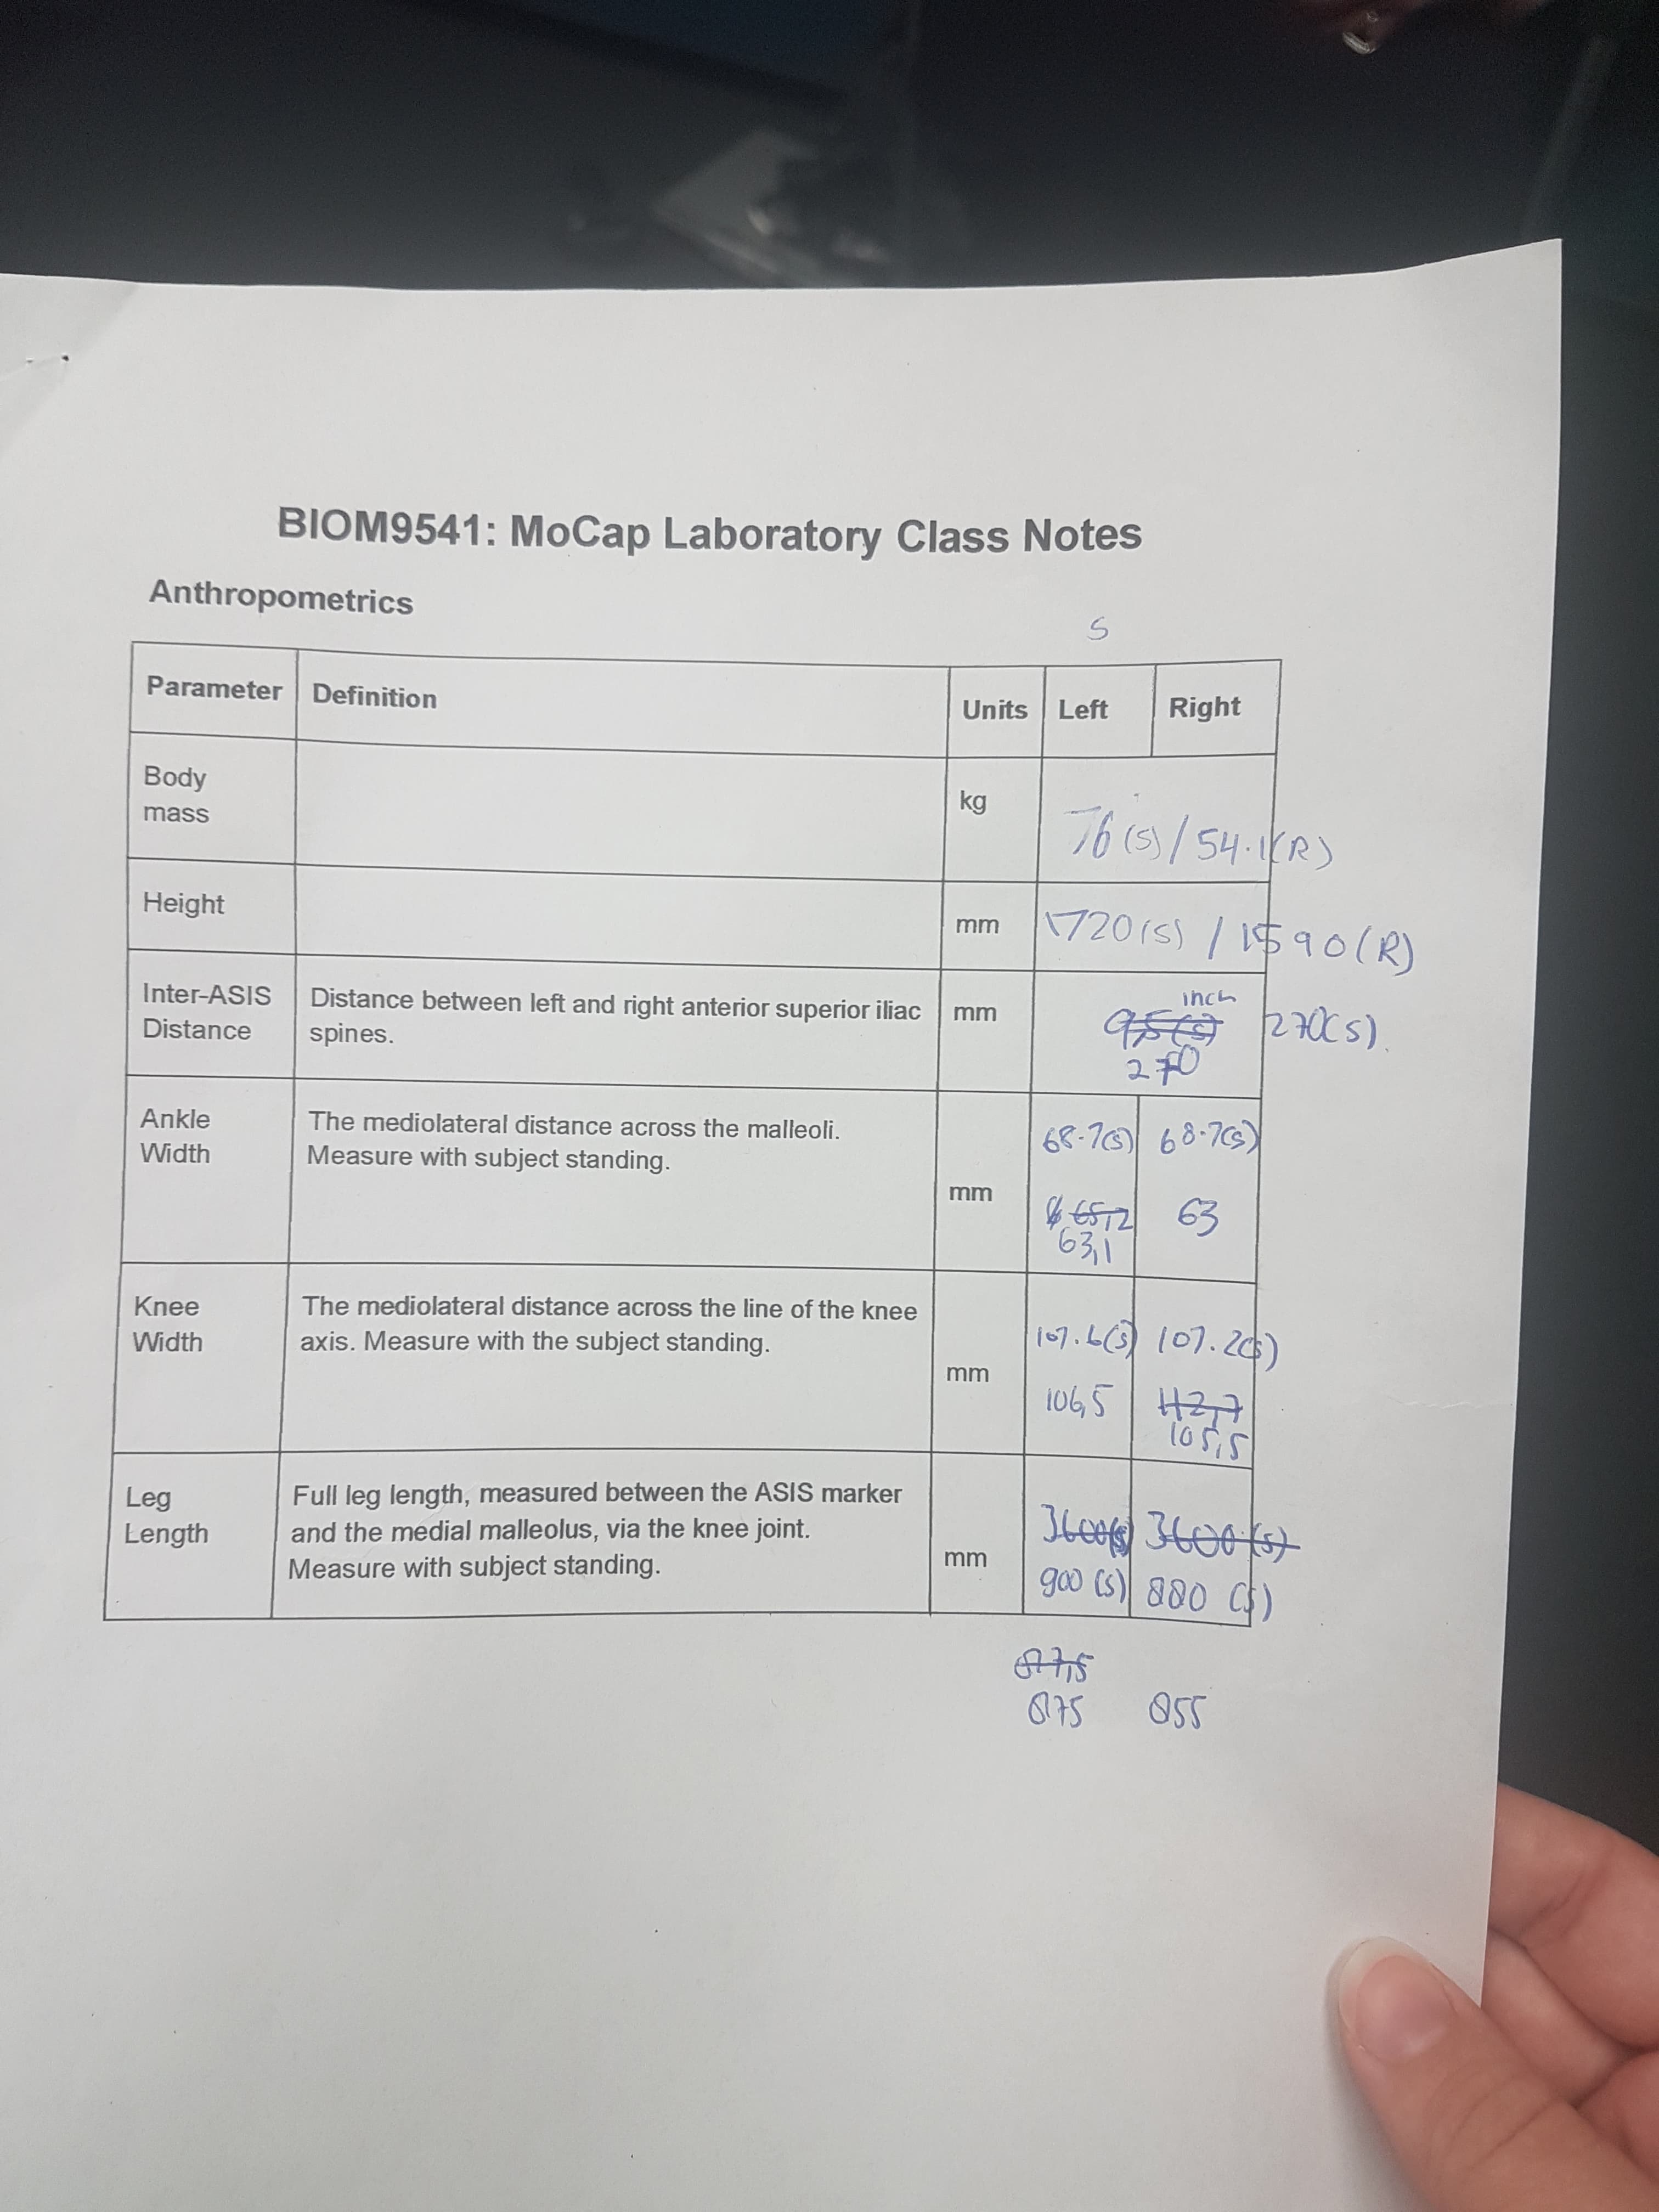 BIOM9541: MoCap Laboratory Class Notes
Anthropometrics
S
Parameter Definition Units Left Right
Body
mass
kg
76 (S) / 54.1 (R)
Height
mm
1720 (S) / 1590 (R)
Inter-ASIS
Distance
Distance between left and right anterior superior iliac
spines.
mm
inch
9,5 (S)
270
270 (S).
Ankle
Width
The mediolateral distance across the malleoli.
Measure with subject standing.
mm
68.7(S) 68.7(S)
65,2 63
63,1
Knee
Width
The mediolateral distance across the line of the knee
axis. Measure with the subject standing.
mm
107.6(S) 107.2(S)
106,5 112,7
105,5
Leg
Length
Full leg length, measured between the ASIS marker
and the medial malleolus, via the knee joint.
Measure with subject standing.
mm
3600(S) 3600 (S)
900 (S) 880 (S)
87,5
875 855